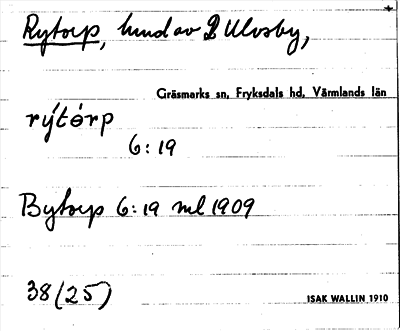 Rytorp, hmd av Ulvsby,
Gräsmarks sn, Fryksdals hd, Värmlands län
rýtòrp
6:19
Bytorp 6:19 ml 1909
38 (25)
ISAK WALLIN 1910